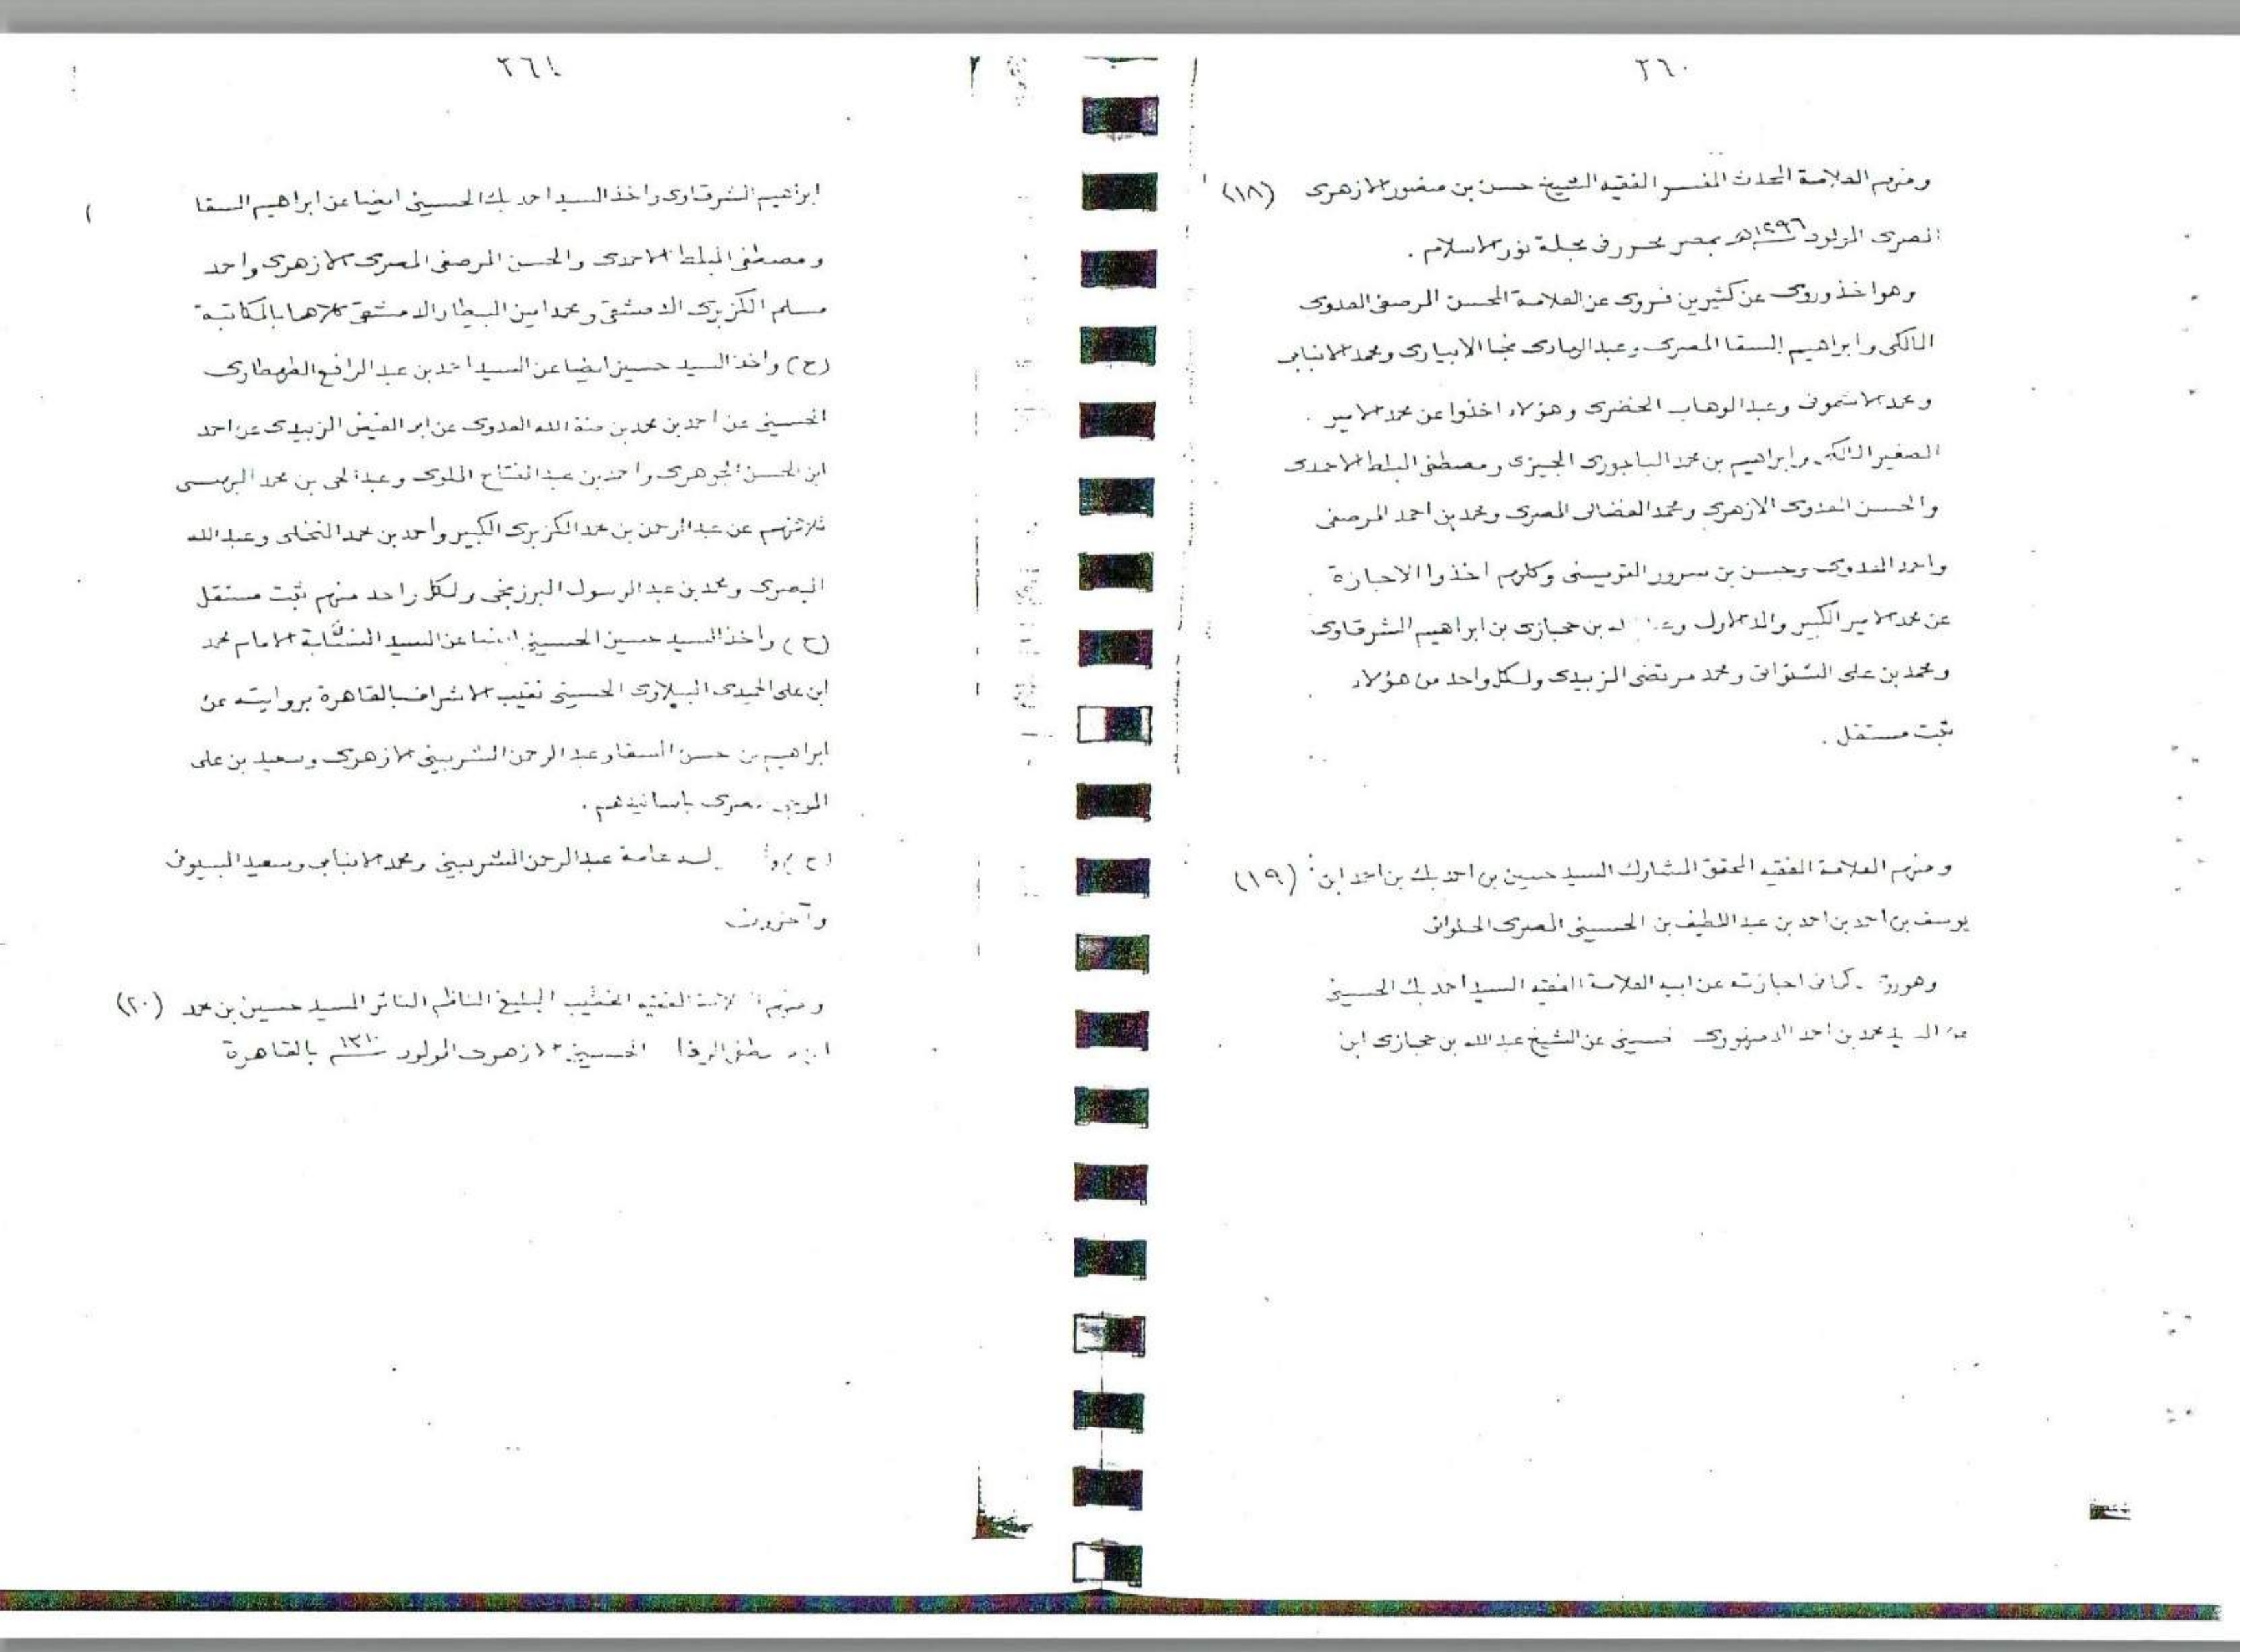 ٣٦٠
ومنهم العلامة المحدث المفسر الفقيه الشيخ حسن بن منصور الازهرى (١٨)
المصرى المولود ١٢٩٦هـ بمصر محرر فى مجلة نور الاسلام .
وهو اخذ وروى عن كثيرين فروى عن العلامة المحسن المرصفى العدوى
المالكى وابراهيم السقا المصرى وعبد الهادى نجا الابيارى ومحمد الانبابى
ومحمد الاشمونى وعبد الوهاب الخضرى وهؤلاء اخذوا عن محمد الامير .
الصغير المالكى وابراهيم بن محمد الباجورى الجيزى ومصطفى البلط الاحمدى
والحسن العدوى الازهرى ومحمد الفضالى المصرى ومحمد بن احمد المرصفى
واحمد العدوى وحسن بن سرور القويسنى وكلهم اخذوا الاجازة
عن محمد الامير الكبير والد الاول بن حجازى بن ابراهيم الشرقاوى
ومحمد بن على الشنوانى ومحمد مرتضى الزبيدى ولكل واحد من هؤلاء
ثبت مستقل .
ومنهم العلامة الفقيه المحقق المشارك السيد حسين بن احمد بك بن احمد ابن (١٩)
يوسف بن احمد بن احمد بن عبد اللطيف بن الحسينى المصرى الحلوانى
وهو كما فى اجازته عن ابيه العلامة الفقيه السيد احمد بك الحسينى
محمد بن احمد الدمنهورى عن الشيخ عبد الله بن حجازى ابن
٣٦١
ابراهيم الشرقاوى واخذ السيد احمد بك الحسينى ايضا عن ابراهيم السقا
ومصطفى البلط الاحمدى والحسن المرصفى المصرى الازهرى واحمد
مسلم الكزبرى الدمشقى ومحمد امين البيطار الدمشقى كلاهما بالمكاتبة
(ح) واخذ السيد حسين ايضا عن السيد احمد بن عبد الرافع الطهطاوى
الحسينى عن احمد بن محمد بن منة الله العدوى عن ابو الفيض الزبيدى عن احمد
ابن الحسن الجوهرى واحمد بن عبد الفتاح الملوى وعبد الحى بن محمد البهنسى
ثلاثتهم عن عبد الرحمن بن محمد الكزبرى الكبير واحمد بن محمد النخلى وعبد الله
البصرى ومحمد بن عبد الرسول البرزنجى ولكل واحد منهم ثبت مستقل
(ح) وأخذ السيد حسين الحسينى ايضا عن السيد النسّابة الامام محمد
ابن على الببلاوى الحسينى نقيب الاشراف بالقاهرة بروايته عن
ابراهيم بن حسن السقا وعبد الرحمن الشربينى الازهرى وسعيد بن على
باسانيدهم .
عامة عبد الرحمن الشربينى ومحمد الانبابى وسعيد البسيونى
وآخرون
ومنهم الفقيه الخطيب البليغ الناظم الناثر السيد حسين بن محمد (٢٠)
الحسينى الازهرى المولود ١٣١٠ بالقاهرة